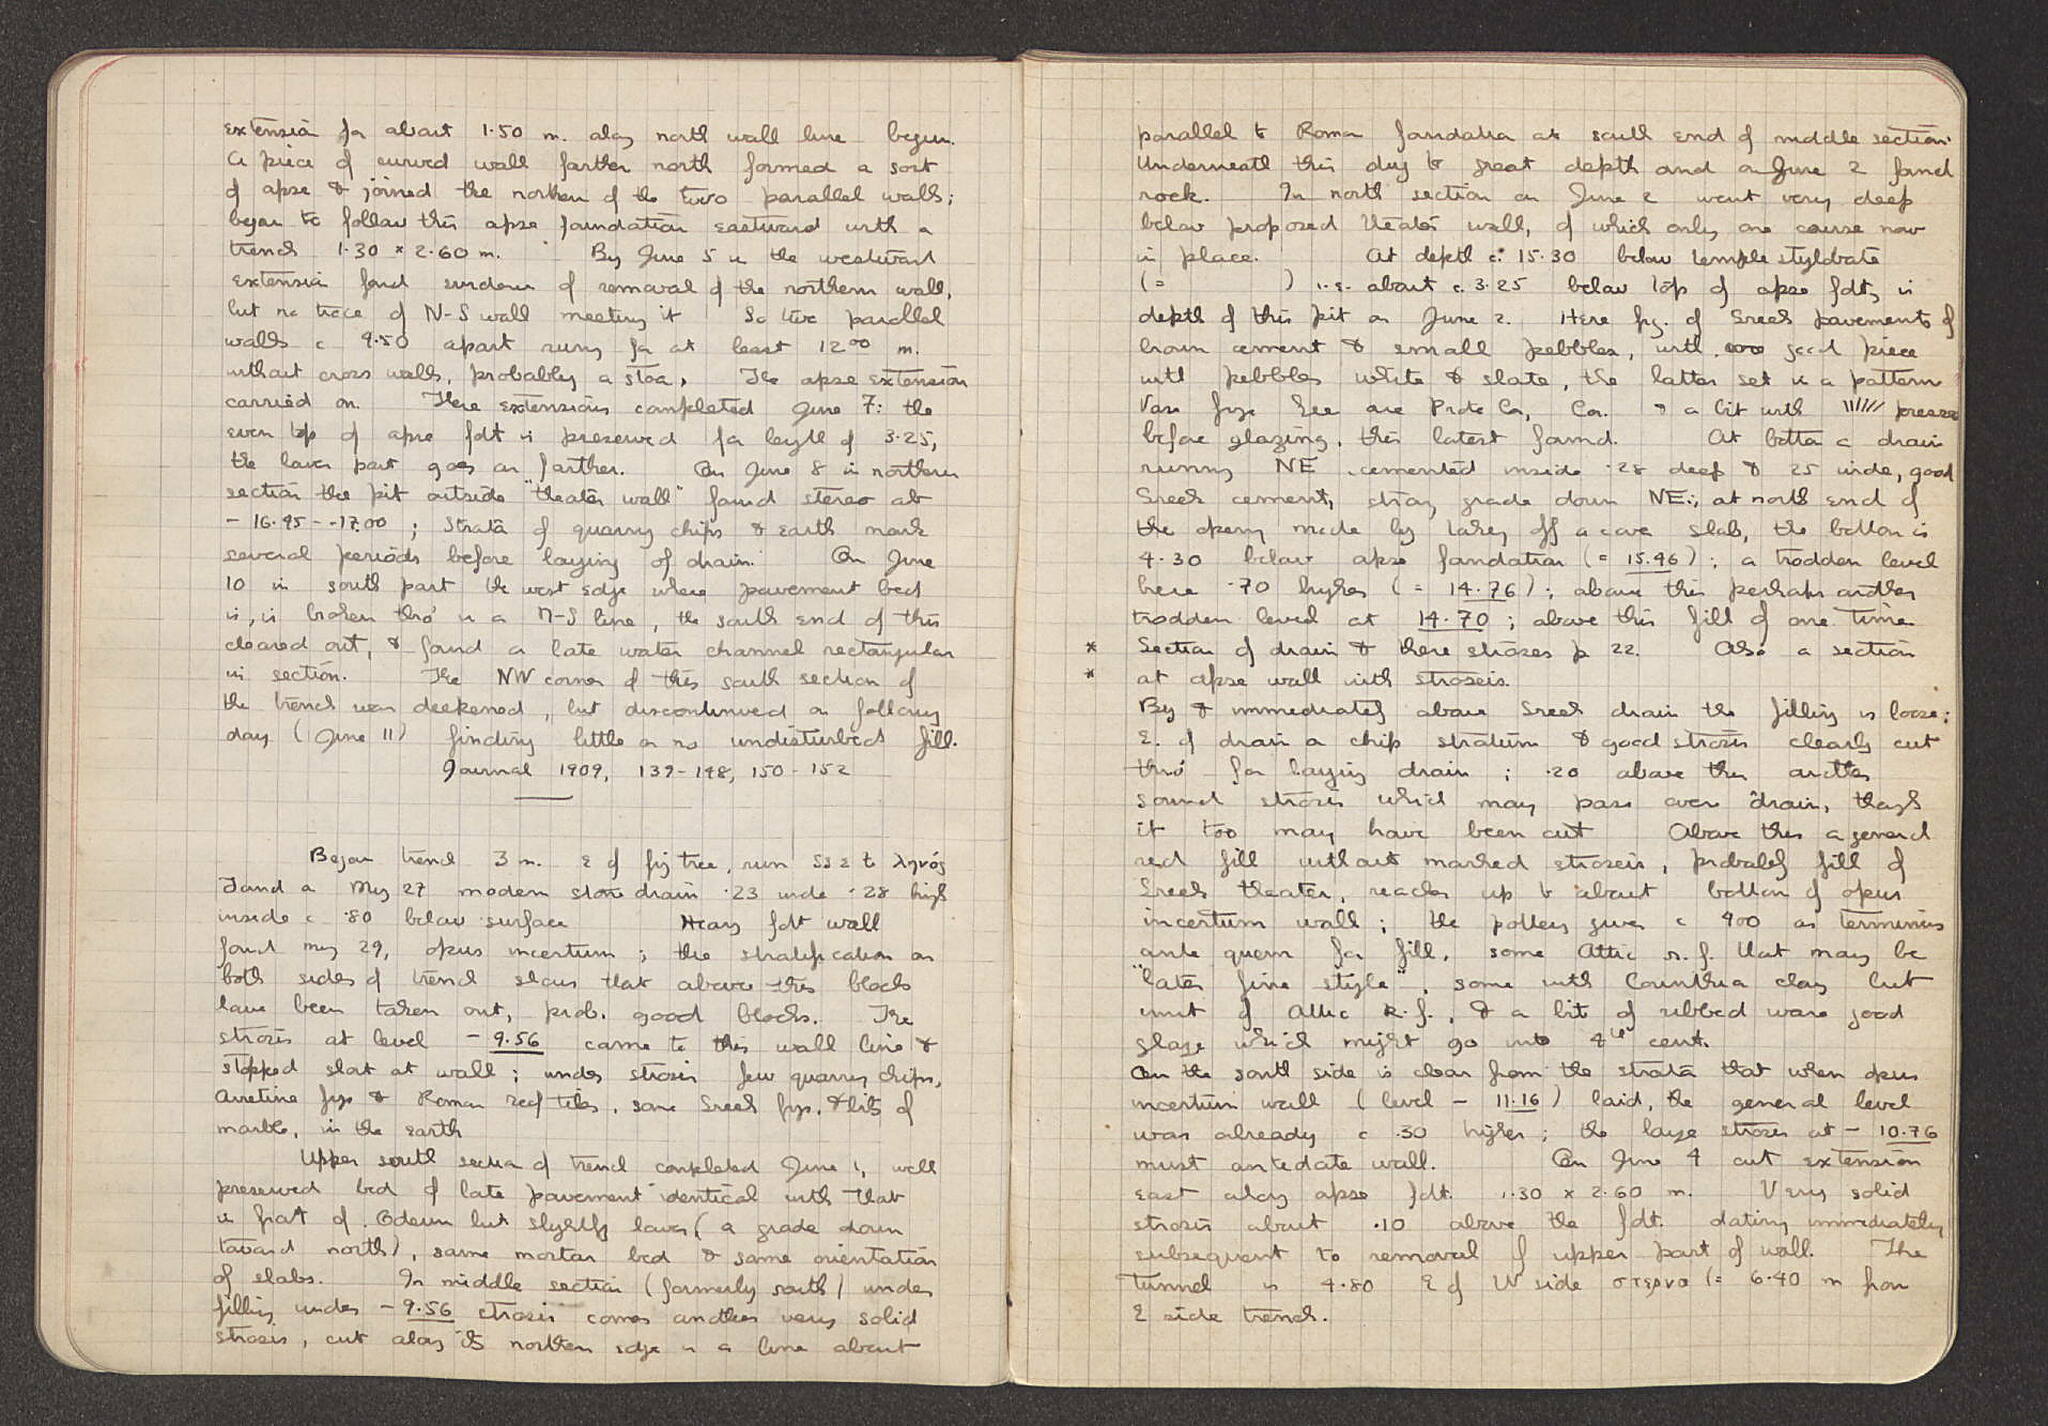 extension for about 1.50 m. along north wall line begun.
A piece of curved wall farther north formed a sort
of apse & joined the northern of the two parallel walls;
began to follow this apse foundation eastward with a
trench 1.30 × 2.60 m. By June 5 in the westward
extension found evidence of removal of the northern wall,
but no trace of N-S wall meeting it So two parallel
walls c 9.50 apart runs for at least 12.00 m.
without cross walls, probably a stoa. The apse extension
carried on. These extensions completed June 7: the
even top of apse fdt is preserved for length of 3.25,
the lower part goes on farther. On June 8 in northern
section the pit outside "theater wall" found stereo at
- 16.95 - -17.00 ; Strata of quarry chips & earth mark
several periods before laying of drain. On June
10 in south part the west edge where pavement bed
is, is broken thro' in a N-S line, the south end of this
cleared out, & found a late water channel rectangular
in section. The NW corner of this south section of
the trench was deepened, but discontinued on following
day (June 11) finding little or no undisturbed fill.
Journal 1909, 139-148, 150-152
Began trench 3 m. E of fig tree, run SSE to ληνός
Found on May 27 modern stone drain .23 wide .28 high
inside c .80 below surface Heavy fdt wall
found May 29, opus incertum; the stratification on
both sides of trench shows that above this blocks
have been taken out, prob. good blocks. The
strosis at level - 9.56 came to this wall line &
stopped short at wall; under strosis few quarry chips,
Arretine frgs & Roman roof tiles, some Greek frgs. & bits of
marble, in the earth
Upper south section of trench completed June 1, well
preserved bed of late pavement identical with that
in front of Odeum but slightly lower (a grade down
toward north), same mortar bed & same orientation
of slabs. In middle section (formerly south) under
filling under - 9.56 strosis comes another very solid
strosis, cut along its northern edge in a line about
parallel to Roman foundation at south end of middle section.
Underneath this dug to great depth and on June 2 found
rock. In north section on June 2 went very deep
below proposed theater wall, of which only one course now
in place. At depth c. 15.30 below temple stylobate
(= ) i.e. about c. 3.25 below top of apse fdt, is
depth of this pit on June 2. Here frg. of Greek pavements of
brown cement & small pebbles, with good piece
with pebbles white & slate, the latter set in a pattern
Vase frgs here are Proto Cor, Cor. & a bit with \\\\\\ pressed
before glazing, this latest found. At bottom a drain
running NE cemented inside .28 deep & 25 wide, good
Greek cement, strong grade down NE.; at north end of
the opening made by taking off a cover slab, the bottom is
4.30 below apse foundation (= 15.46); a trodden level
here .70 higher (= 14.76); above this perhaps another
trodden level at 14.70; above this fill of one time
* Section of drain & these stroses p 22. Also a section
* at apse wall with stroseis.
By & immediately above Greek drain the filling is loose;
E. of drain a chip stratum & good strosis clearly cut
thro' for laying drain; .20 above this another
sound strosis which may pass over drain, though
it too may have been cut Above this a general
red fill without marked stroseis, probably fill of
Greek theater, reaches up to about bottom of opus
incertum wall; the pottery gives c 400 as terminus
ante quem for fill, some Attic r.f. that may be
"later fine style", some with Corinthian clay but
imit of Attic R.f., & a bit of ribbed ware good
glaze which might go into 4th cent.
On the south side is clear from the strata that when opus
incertum wall (level - 11.16) laid, the general level
was already c .30 higher; the large strosis at - 10.76
must antedate wall. On June 4 cut extension
east along apse fdt. 1.30 x 2.60 m. Very solid
strosis about .10 above the fdt. dating immediately
subsequent to removal of upper part of wall. The
tunnel is 4.80 E of W side στερνα (= 6.40 m from
E side trench.